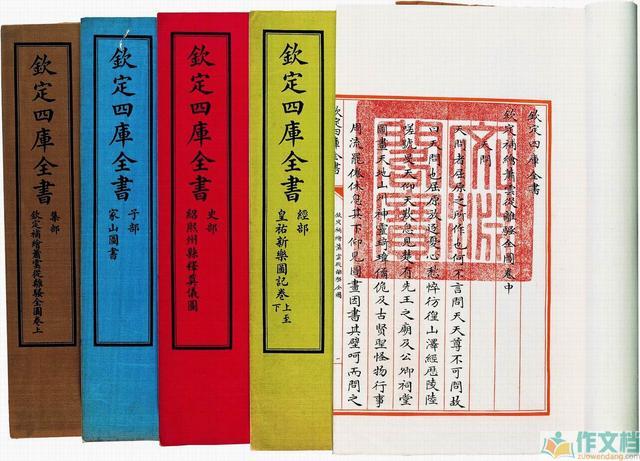 欽定四庫全書
集部
欽定補繪蕭雲從離騷全圖卷上
欽定四庫全書
子部
家山圖書
欽定四庫全書
史部
紹熙州縣釋奠儀圖
欽定四庫全書
經部
皇祐新樂圖記卷上至下
欽定四庫全書
欽定補繪蕭雲從離騷全圖卷中
天問
天問者屈原之所作也何不言問天天尊不可問故
曰天問也屈原放逐憂心愁悴彷徨山澤經歷陵陸
嗟號旻天仰天歎息見楚有先王之廟及公卿祠堂
圖畫天地山川神靈琦瑋僪佹及古賢聖怪物行事
周流罷倦休息其下仰見圖畫因書其壁呵而問之
欽定四庫全書
欽定補繪蕭雲從離騷全圖
文淵閣寶
作文档
zuowendang.com